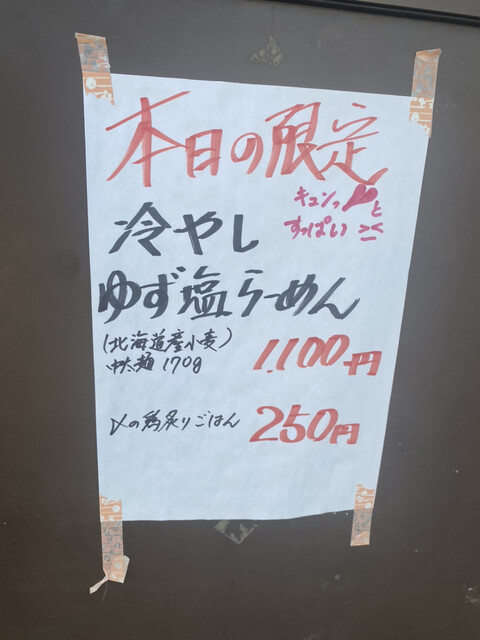 本日の限定
キュンっ♥と
すっぱい ><
冷やし
ゆず塩らーめん
(北海道産小麦)
中太麺 170g
1.100円
〆の鶏炙りごはん 250円